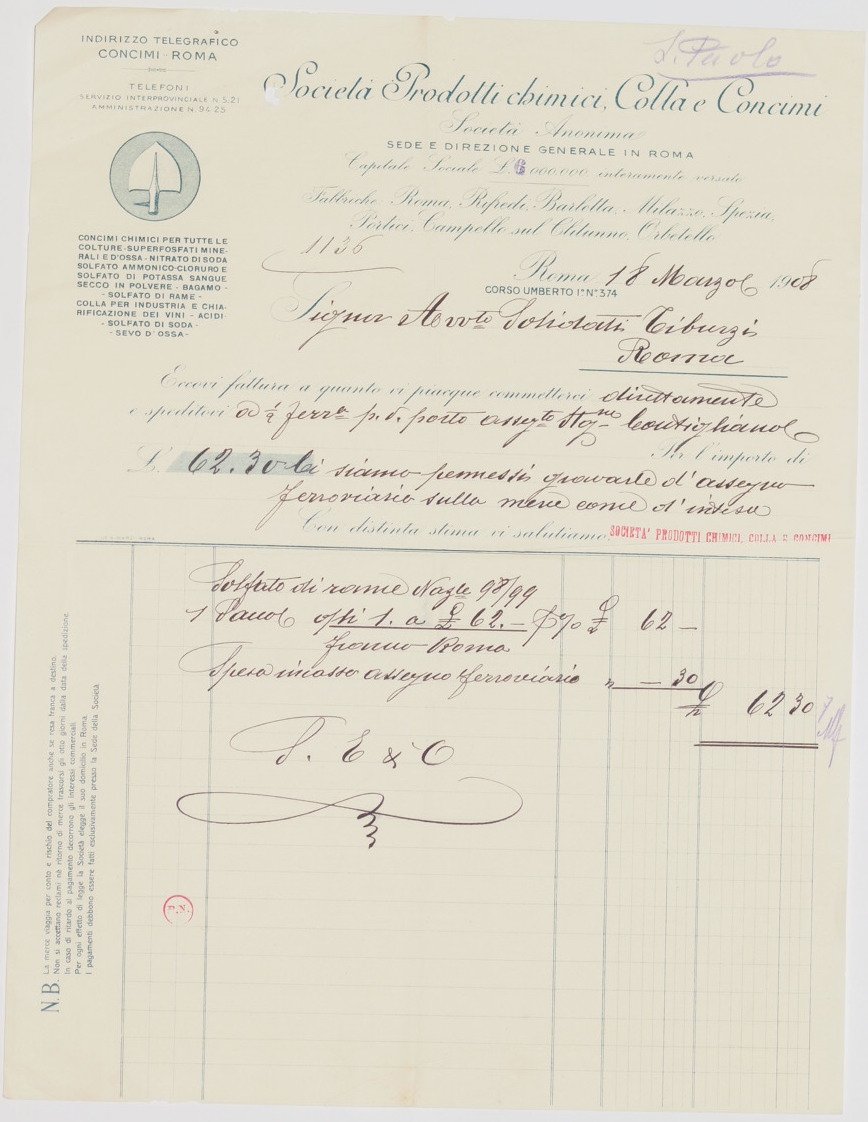 INDIRIZZO TELEGRAFICO
CONCIMI - ROMA
TELEFONI
SERVIZIO INTERPROVINCIALE N. 5.21
AMMINISTRAZIONE N. 94-25
S. Paolo
Società Prodotti chimici, Colla e Concimi
Società Anonima
SEDE E DIREZIONE GENERALE IN ROMA
Capitale Sociale £. 6.000.000 interamente versato
Fabbriche: Roma, Rifredi, Barletta, Milazzo, Spezia,
Portici, Campello sul Clitunno, Orbetello
CONCIMI CHIMICI PER TUTTE LE
COLTURE - SUPERFOSFATI MINE-
RALI E D'OSSA - NITRATO DI SODA
SOLFATO AMMONICO - CLORURO E
SOLFATO DI POTASSA SANGUE
SECCO IN POLVERE - BAGAMO -
- SOLFATO DI RAME -
COLLA PER INDUSTRIA E CHIA-
RIFICAZIONE DEI VINI - ACIDI -
- SOLFATO DI SODA -
- SEVO D'OSSA -
1136
Roma, 18 Marzo 1908
CORSO UMBERTO I° N° 374
Signor Avvto Solidati Tiburzi
Roma
Eccovi fattura a quanto vi piacque commetterci direttamente
e speditovi a ½ ferra p.v. porto assegto Stone Contigliano
Per l'importo di
£. 62.30 ci siamo permessi gravarle d'assegno
ferroviario sulla merce come d'intesa
Con distinta stima vi salutiamo SOCIETA' PRODOTTI CHIMICI, COLLA E CONCIMI
Solfato di rame Nazle 98/99
1 Sacco a £ 62. - % £ 62 -
franco Roma
Spesa incasso assegno ferroviario " - 30
£ 62 30
S. E & O
N.B. La merce viaggia per conto e rischio del compratore anche se resa franca a destino.
Non si accettano reclami nè ritorno di merce trascorsi gli otto giorni dalla data della spedizione.
In caso di ritardo al pagamento decorrono gli interessi commerciali.
Per ogni effetto di legge la Società elegge il suo domicilio in Roma
I pagamenti debbono essere fatti esclusivamente presso la Sede della Società.